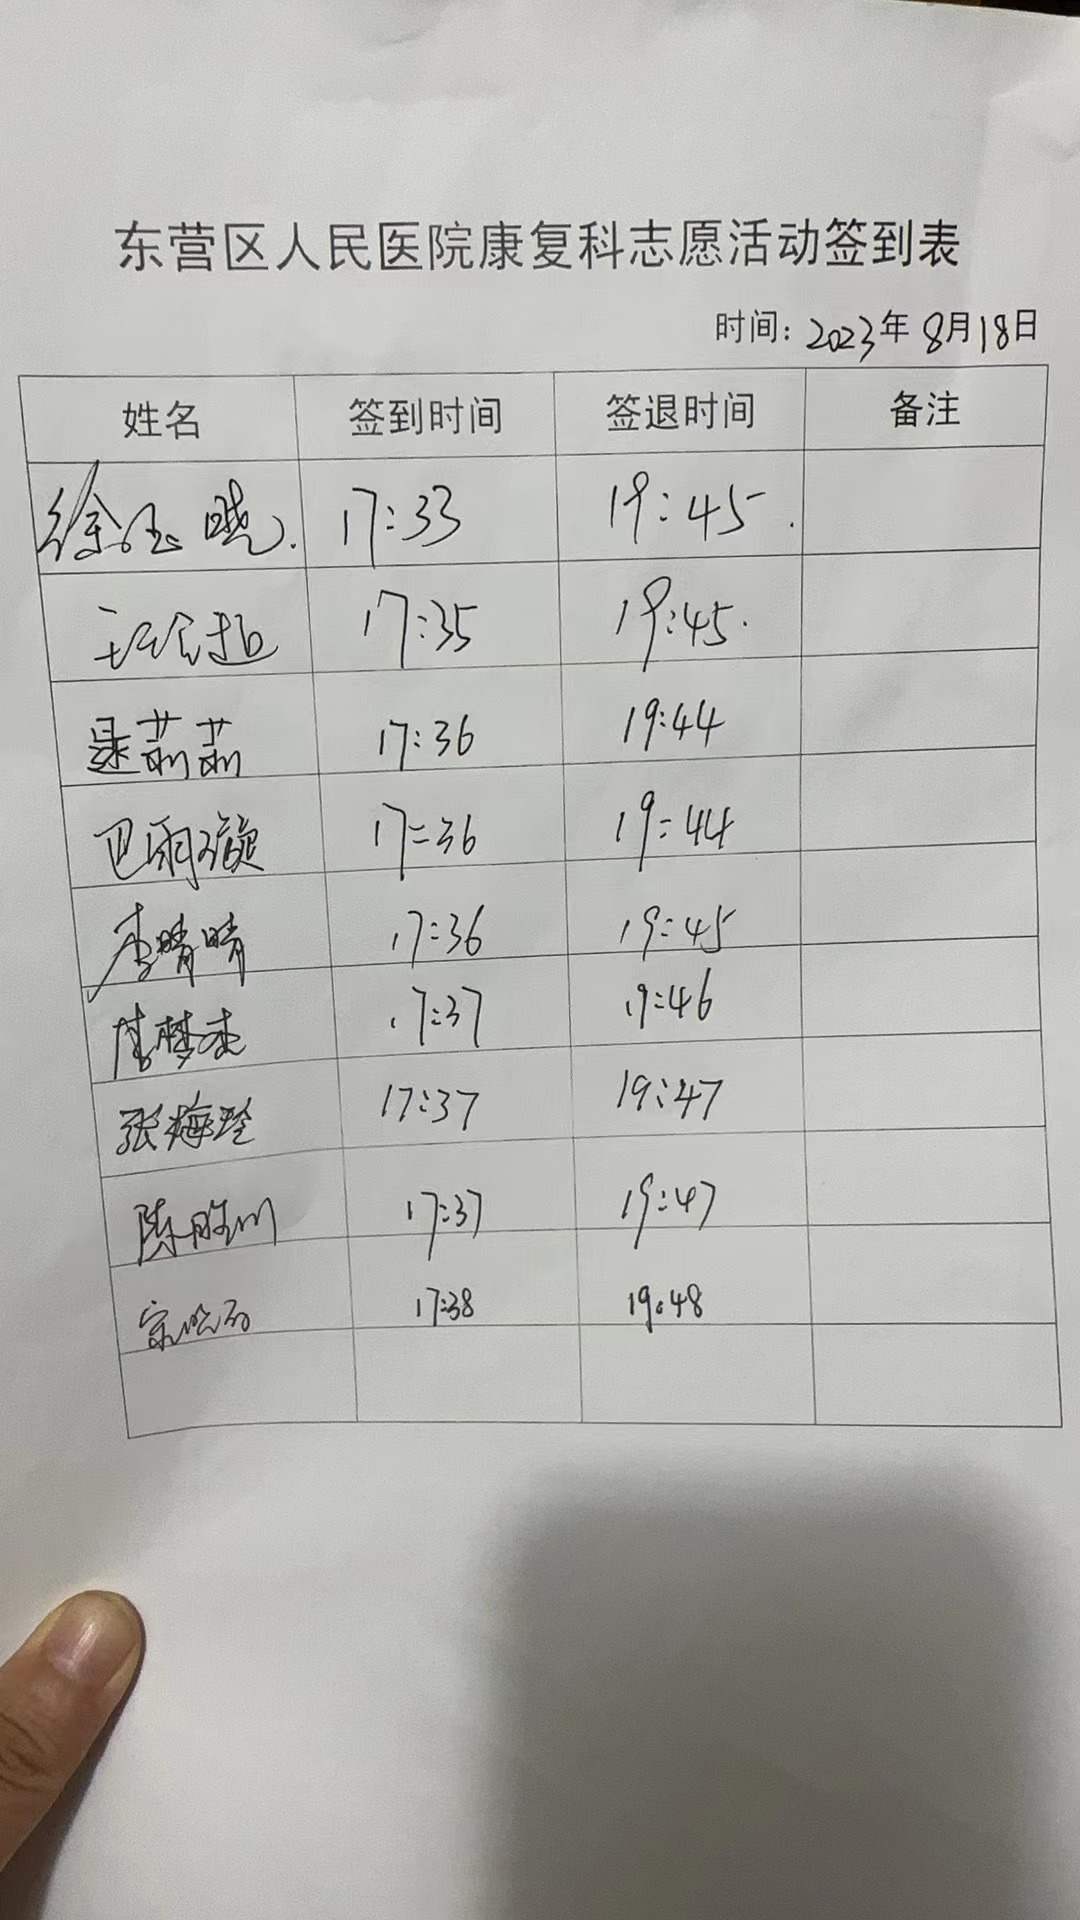 东营区人民医院康复科志愿活动签到表
时间: 2023年 8月18日
姓名 签到时间 签退时间 备注
徐玉晓. 17:33 19:45.
17:35 19:45.
莉莉 17:36 19:44
巴雨璇 17:36 19:44
李晴晴 17:36 19:45
李梦杰 17:37 19:46
张梅 17:37 19:47
陈胜川 17:37 19:47
宋 17:38 19:48